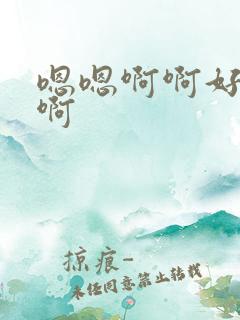 嗯嗯啊啊好
啊
掠痕-
未经同意禁止转载